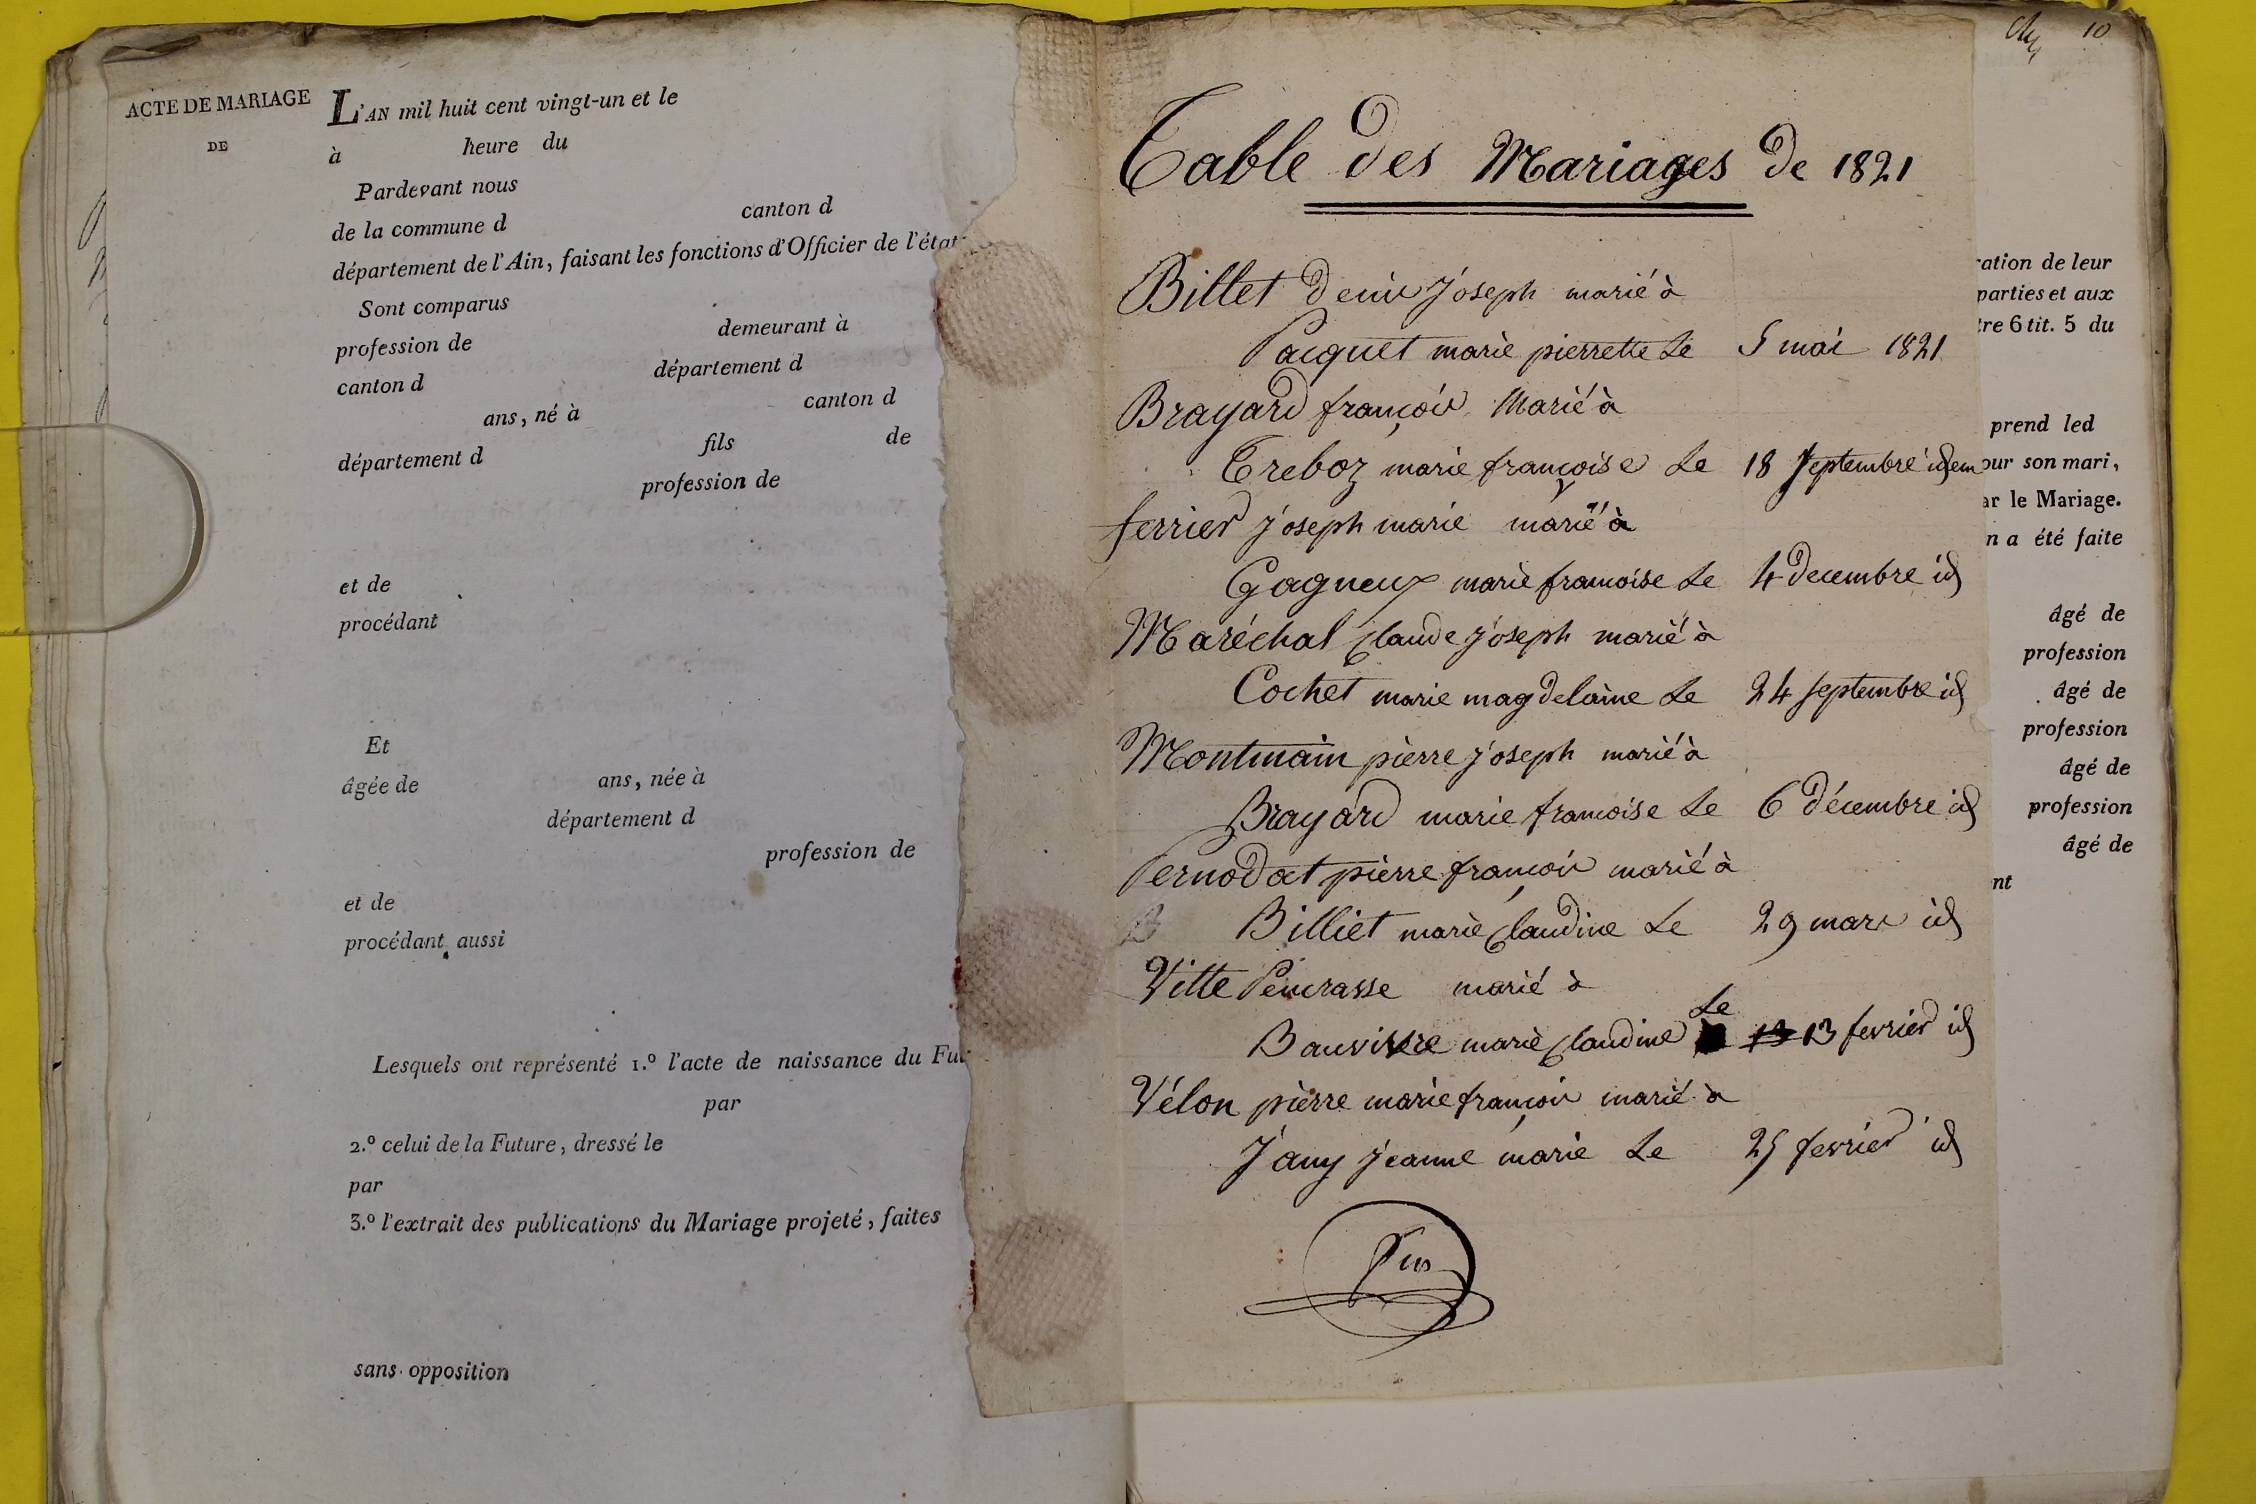 ACTE DE MARIAGE
DE
L'AN mil huit cent vingt-un et le
à heure du
Pardevant nous
de la commune d canton d
département de l'Ain, faisant les fonctions d'Officier de l'état
Sont comparus
profession de demeurant à
canton d département d
ans, né à canton d
département d fils de
profession de
et de
procédant
Et
âgée de ans, née à
département d
profession de
et de
procédant aussi
Lesquels ont représenté 1.º l'acte de naissance du Fu
par
2.º celui de la Future, dressé le
par
3.º l'extrait des publications du Mariage projeté, faites
sans opposition
10
Table des Mariages de 1821
Billet denis joseph marié à
Pacquet marie pierrette Le 5 mai 1821
Brayard françois Marié à
Treboz marie françoise Le 18 Septembre idem
ferrier joseph marie marié à
Gagneux marie francoise Le 4 decembre id
Maréchal Claude joseph marié à
Cochet marie magdelaine Le 24 septembre id
Montmain pierre joseph marié à
Brayard marie francoise Le 6 décembre id
Pernodat pierre françois marié à
B Billiet marie Claudine Le 29 mars id
Vitte Pencrasse marié à
Bauvivre marie Claudine Le 13 13 fevrier id
Vélon pierre marie françois marié à
Jany jeanne marie Le 25 fevrier id
ration de leur
parties et aux
tre 6 tit. 5 du
prend led
our son mari,
ar le Mariage.
n a été faite
âgé de
profession
âgé de
profession
âgé de
profession
âgé de
nt